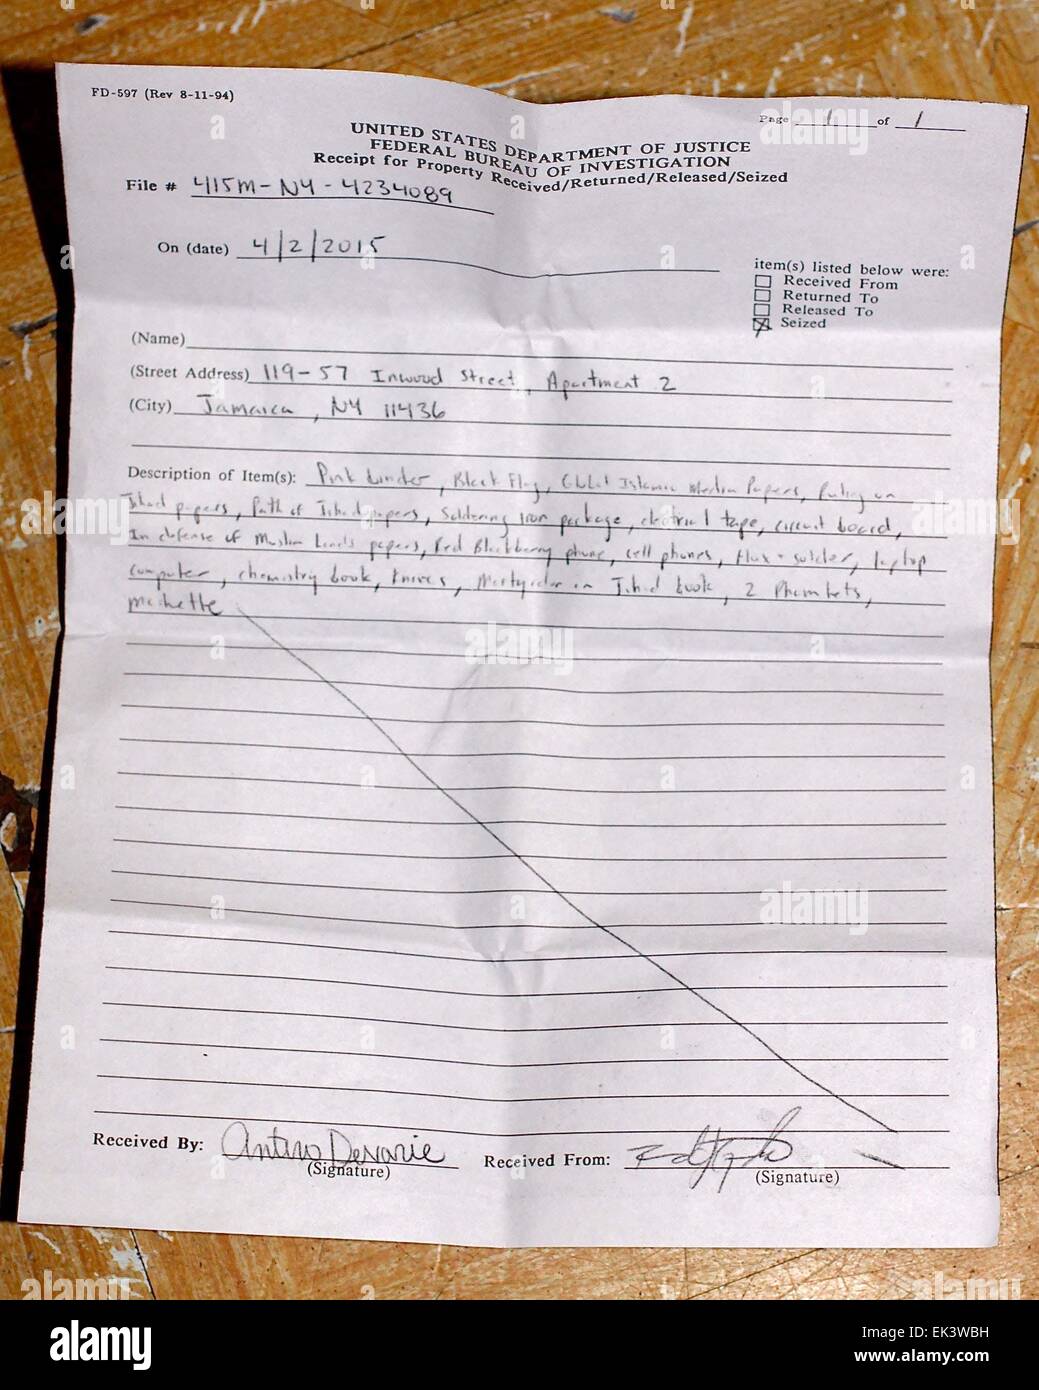 FD-597 (Rev 8-11-94)
Page 1 of 1
UNITED STATES DEPARTMENT OF JUSTICE
FEDERAL BUREAU OF INVESTIGATION
Receipt for Property Received/Returned/Released/Seized
File # 415M-NY-4234089
On (date) 4/2/2015
item(s) listed below were:
Received From
Returned To
Released To
Seized
(Name)
(Street Address) 119-57 Inwood Street, Apartment 2
(City) Jamaica, NY 11436
Description of Item(s): Pink binder, Black Flag, Global Islamic Media Papers, Ruling on
Jihad papers, Path of Jihad papers, Soldering iron package, electrical tape, circuit board,
In defense of Muslim Lands papers, Red Blackberry phone, cell phones, flux + solder, laptop
computer, chemistry book, knives, Martyrdom in Jihad book, 2 Phamlets,
machette
Received By: Antino Devarie
(Signature)
Received From:
(Signature)
a alamy
alamy
Image ID: EK3WBH
www.alamy.com